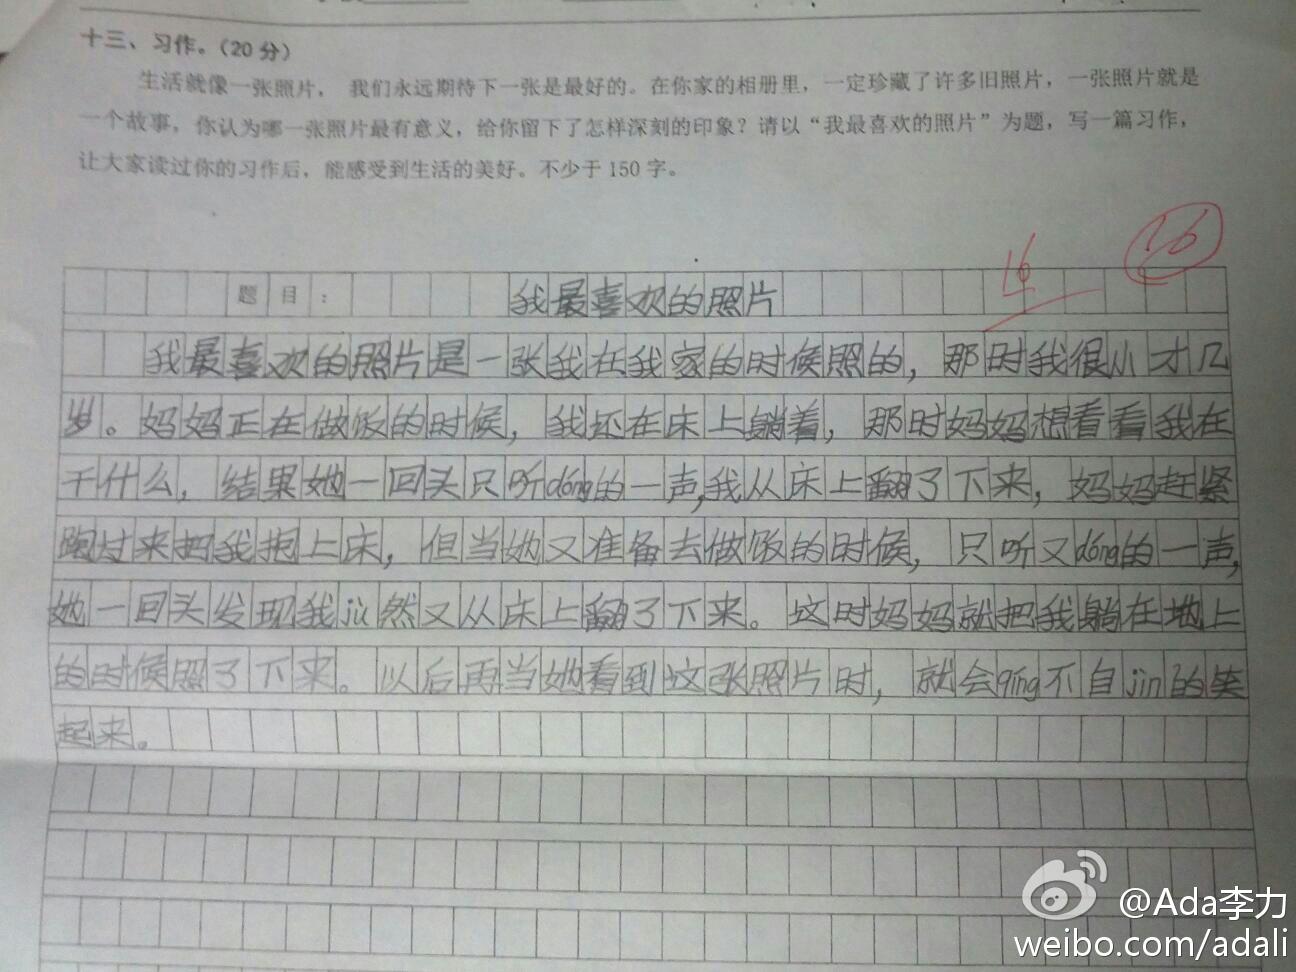 十三、习作。(20分)
生活就像一张照片， 我们永远期待下一张是最好的。在你家的相册里，一定珍藏了许多旧照片，一张照片就是
一个故事，你认为哪一张照片最有意义，给你留下了怎样深刻的印象？请以“我最喜欢的照片”为题，写一篇习作，
让大家读过你的习作后，能感受到生活的美好。不少于150字。
16
16
题目： 我最喜欢的照片
我最喜欢的照片是一张我在我家的时候照的，那时我很小才几
岁。妈妈正在做饭的时候，我还在床上躺着，那时妈妈想看看我在
干什么，结果她一回头只听dóng的一声，我从床上翻了下来，妈妈赶紧
跑过来把我抱上床，但当她又准备去做饭的时候，只听又dóng的一声，
她一回头发现我jū然又从床上翻了下来。这时妈妈就把我躺在地上
的时候照了下来。以后再当她看到这张照片时，就会qíng不自jīn的笑
起来。
@Ada李力
weibo.com/adali